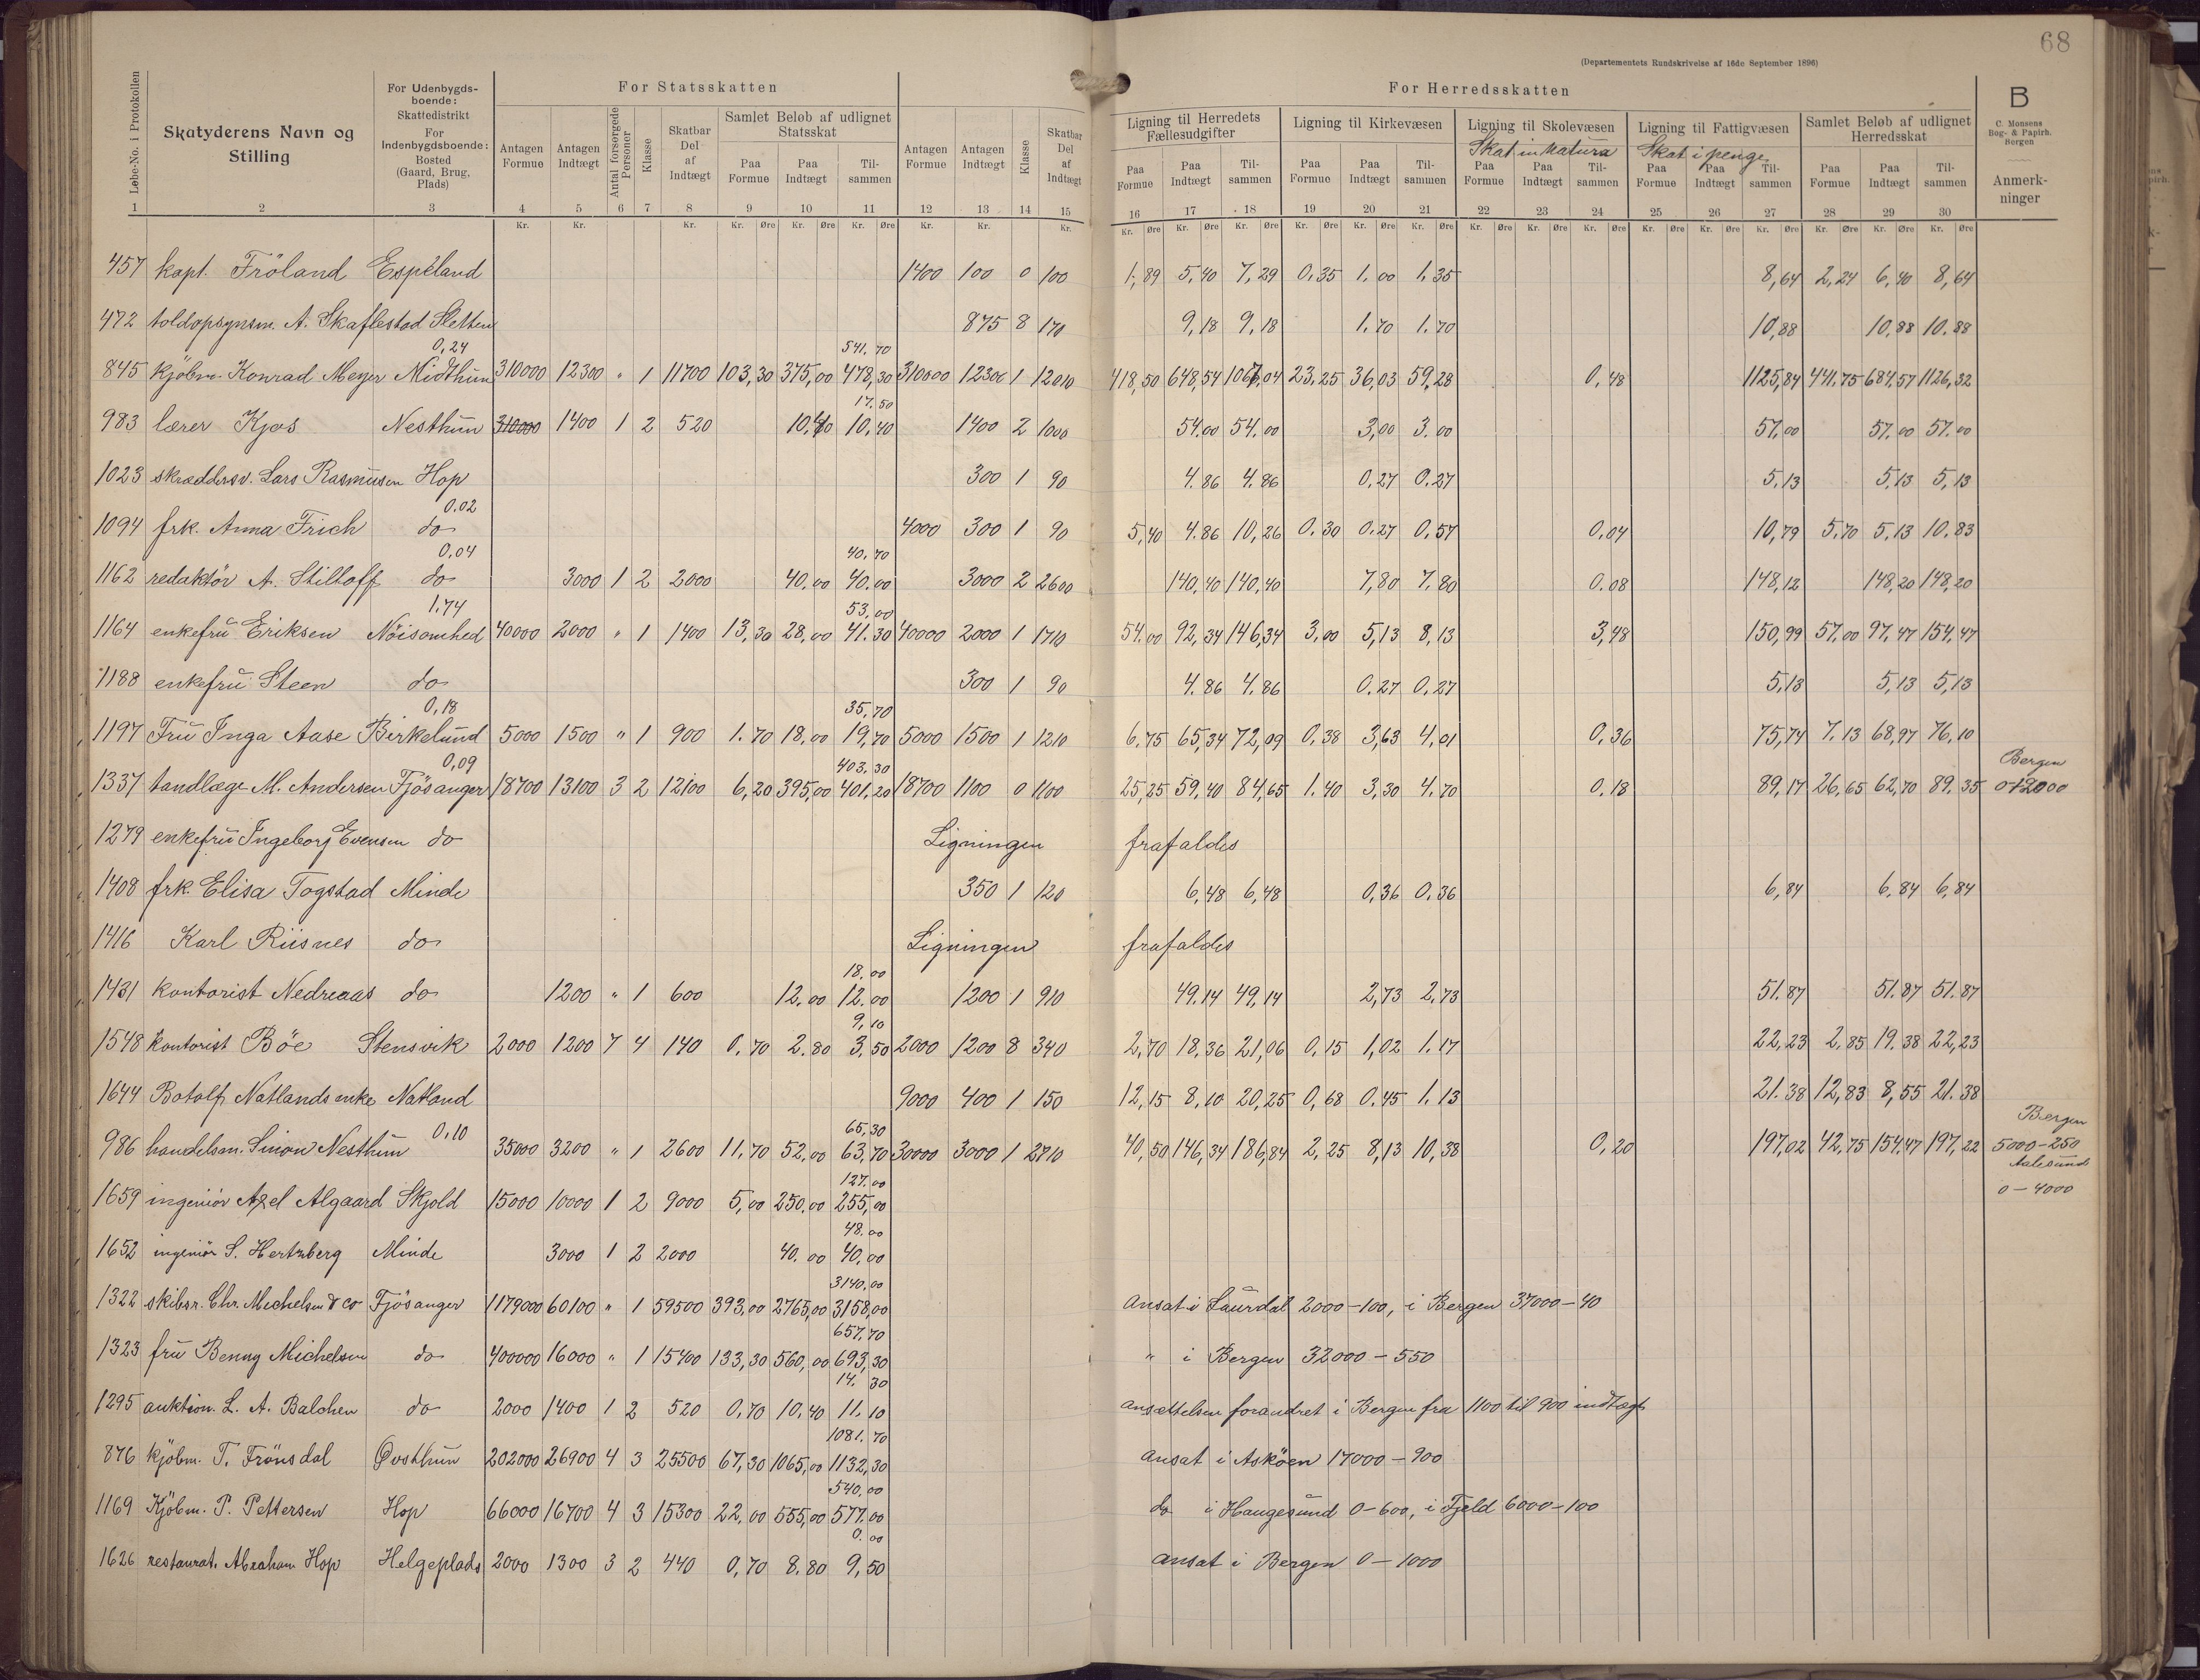 68
(Departementets Rundskrivelse af 16de September 1896)
For Statsskatten
For Herredsskatten
B
C. Monsens Bog- & Papirh. Bergen
Løbe-No. i Protokollen
Skatyderens Navn og Stilling
For Udenbygdsboende: Skattedistrikt For Indenbygdsboende: Bosted (Gaard, Brug, Plads)
Antagen Formue
Antagen Indtægt
Antal forsørgede Personer
Klasse
Skatbar Del af Indtægt
Samlet Beløb af udlignet Statsskat
Paa Formue Paa Indtægt Tilsammen
Antagen Formue
Antagen Indtægt
Klasse
Skatbar Del af Indtægt
Ligning til Herredets Fællesudgifter
Paa Formue Paa Indtægt Tilsammen
Ligning til Kirkevæsen
Paa Formue Paa Indtægt Tilsammen
Ligning til Skolevæsen
Skat in natura
Paa Formue Paa Indtægt Tilsammen
Ligning til Fattigvæsen
Skat i penge
Paa Formue Paa Indtægt Tilsammen
Samlet Beløb af udlignet Herredsskat
Paa Formue Paa Indtægt Tilsammen
Anmerkninger
1 2 3 4 5 6 7 8 9 10 11 12 13 14 15 16 17 18 19 20 21 22 23 24 25 26 27 28 29 30
Kr. Kr. Kr. Kr. Øre Kr. Øre Kr. Øre Kr. Kr. Kr. Kr. Øre Kr. Øre Kr. Øre Kr. Øre Kr. Øre Kr. Øre Kr. Øre Kr. Øre Kr. Øre Kr. Øre Kr. Øre Kr. Øre Kr. Øre Kr. Øre Kr. Øre
457 kapt. Fröland Espeland 1400 100 0 100 1,89 5,40 7,29 0,35 1.00 1,35 8,64 2,24 6,40 8,64
472 toldopsynsm. A. Skaflestad Sletten 875 8 170 9,18 9,18 1.70 1.70 10,88 10,88 10.88
0,24 541,70
845 kjöbm. Konrad Meyer Midthun 310000 12300 " 1 11700 103,30 375,00 478,30 310000 12300 1 12010 418,50 648,54 1067,04 23,25 36,03 59,28 0,48 1125,84 441,75 684,57 1126,32
17.50
983 lærer Kjos Nesthun 310000 1400 1 2 520 10,40 10,40 1400 2 1000 54.00 54.00 3,00 3.00 57,00 57.00 57.00
1023 skræddersv. Lars Rasmusen Hop 300 1 90 4.86 4.86 0,27 0.27 5.13 5,13 5,13
0.02
1094 frk. Anna Frich do 4000 300 1 90 5,40 4.86 10,26 0.30 0.27 0,57 0,04 10,79 5.70 5,13 10.83
0,04 40.70
1162 redaktör A. Stiltoff do 3000 1 2 2000 40.00 40.00 3000 2 2600 140,40 140,40 7,80 7.80 0.08 148,12 148,20 148,20
1.74 53,00
1164 enkefru Eriksen Nöisomhed 40000 2000 " 1 1400 13,30 28,00 41.30 40000 2000 1 1710 54.00 92,34 146,34 3,00 5,13 8,13 3,48 150,99 57,00 97,47 154,47
1188 enkefru Steen do 300 1 90 4.86 4.86 0.27 0,27 5,13 5,13 5,13
0,18 35,70
1197 Fru Inga Aase Birkelund 5000 1500 " 1 900 1.70 18,00 19,70 5000 1500 1 1210 6,75 65,34 72,09 0,38 3,63 4,01 0,36 75,74 7.13 68,97 76,10
0,09 403.30 Bergen
1337 tandlæge M. Andersen Fjösanger 18700 13100 3 2 12100 6,20 395,00 401,20 18700 1100 0 1100 25,25 59,40 84,65 1.40 3,30 4.70 0.18 89,17 26,65 62,70 89.35 0-12000
1279 enkefru Ingeborg Evensen do Ligningen frafaldes
1408 frk. Elisa Togstad Minde 350 1 120 6,48 6,48 0,36 0.36 6,84 6.84 6,84
1416 Karl Riisnes do Ligningen frafaldes
18.00
1431 kontorist Nedreaas do 1200 " 1 600 12.00 12.00 1200 1 910 49.14 49,14 2,73 2,73 51.87 51.87 51.87
9,10
1548 kontorist Böe Stensvik 2000 1200 7 4 140 0.70 2.80 3,50 2000 1200 8 340 2,70 18,36 21,06 0,15 1,02 1.17 22,23 2,85 19.38 22,23
1644 Botolf Natlands enke Natland 9000 400 1 150 12,15 8,10 20,25 0,68 0.45 1.13 21.38 12,83 8,55 21.38
0,10 65,30 Bergen
986 handelsm. Simon Nesthun 35000 3200 " 1 2600 11,70 52,00 63,70 30000 3000 1 2710 40,50 146,34 186,84 2,25 8,13 10,38 0,20 197,02 42,75 154,47 197,22 5000-250
127.00 Aalesund
1659 ingeniör Axel Algaard Skjold 15000 10000 1 2 9000 5,00 250,00 255,00 0-4000
48.00
1652 ingeniör S. Hertzberg Minde 3000 1 2 2000 40.00 40,00
3140.00
1322 skibsr. Chr. Michelsen & co Fjösanger 1179000 60100 " 1 59500 393,00 2765,00 3158,00 Ansat i Laurdal 2000-100, i Bergen 37000-40
657.70
1323 fru Benny Michelsen do 400000 16000 " 1 15400 133,30 560,00 693,30 " i Bergen 32000-550
14.30
1295 auktion. L. A. Balchen do 2000 1400 1 2 520 0,70 10,40 11.10 ansættelsen forandret i Bergen fra 1100 til 900 indtægt
1081.70
876 kjöbm. T. Frönsdal Øvsthun 202000 26900 4 3 25500 67,30 1065,00 1132,30 ansat i Asköen 17000-900
540.00
1169 Kjöbm. P. Pettersen Hop 66000 16700 4 3 15300 22,00 555,00 577.00 do i Haugesund 0-600, i Fjeld 6000-100
0.00
1626 restaurat. Abraham Hop Helgeplads 2000 1300 3 2 440 0,70 8.80 9,50 ansat i Bergen 0-1000